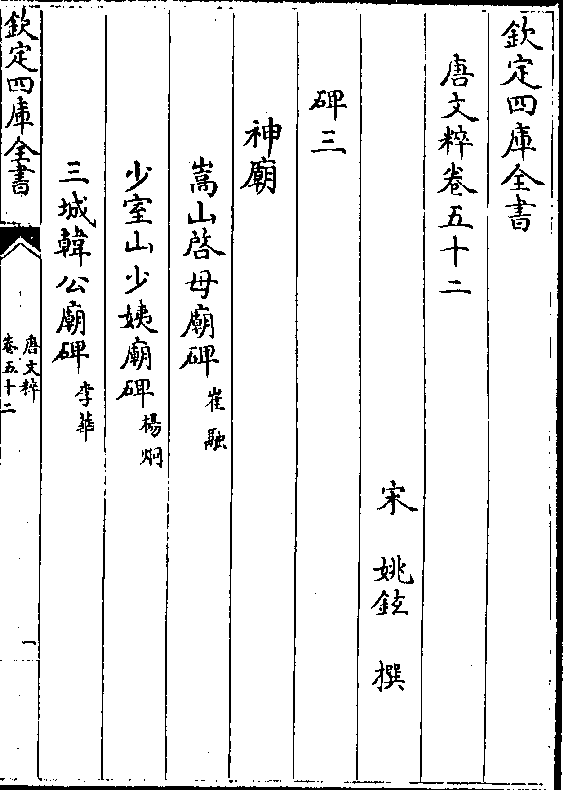 欽定四庫全書
唐文粹卷五十二
宋 姚鉉 撰
碑三
神廟
嵩山啓母廟碑 崔融
少室山少姨廟碑 楊烱
三城韓公廟碑 李華
欽定四庫全書
唐文粹
卷五十二
一